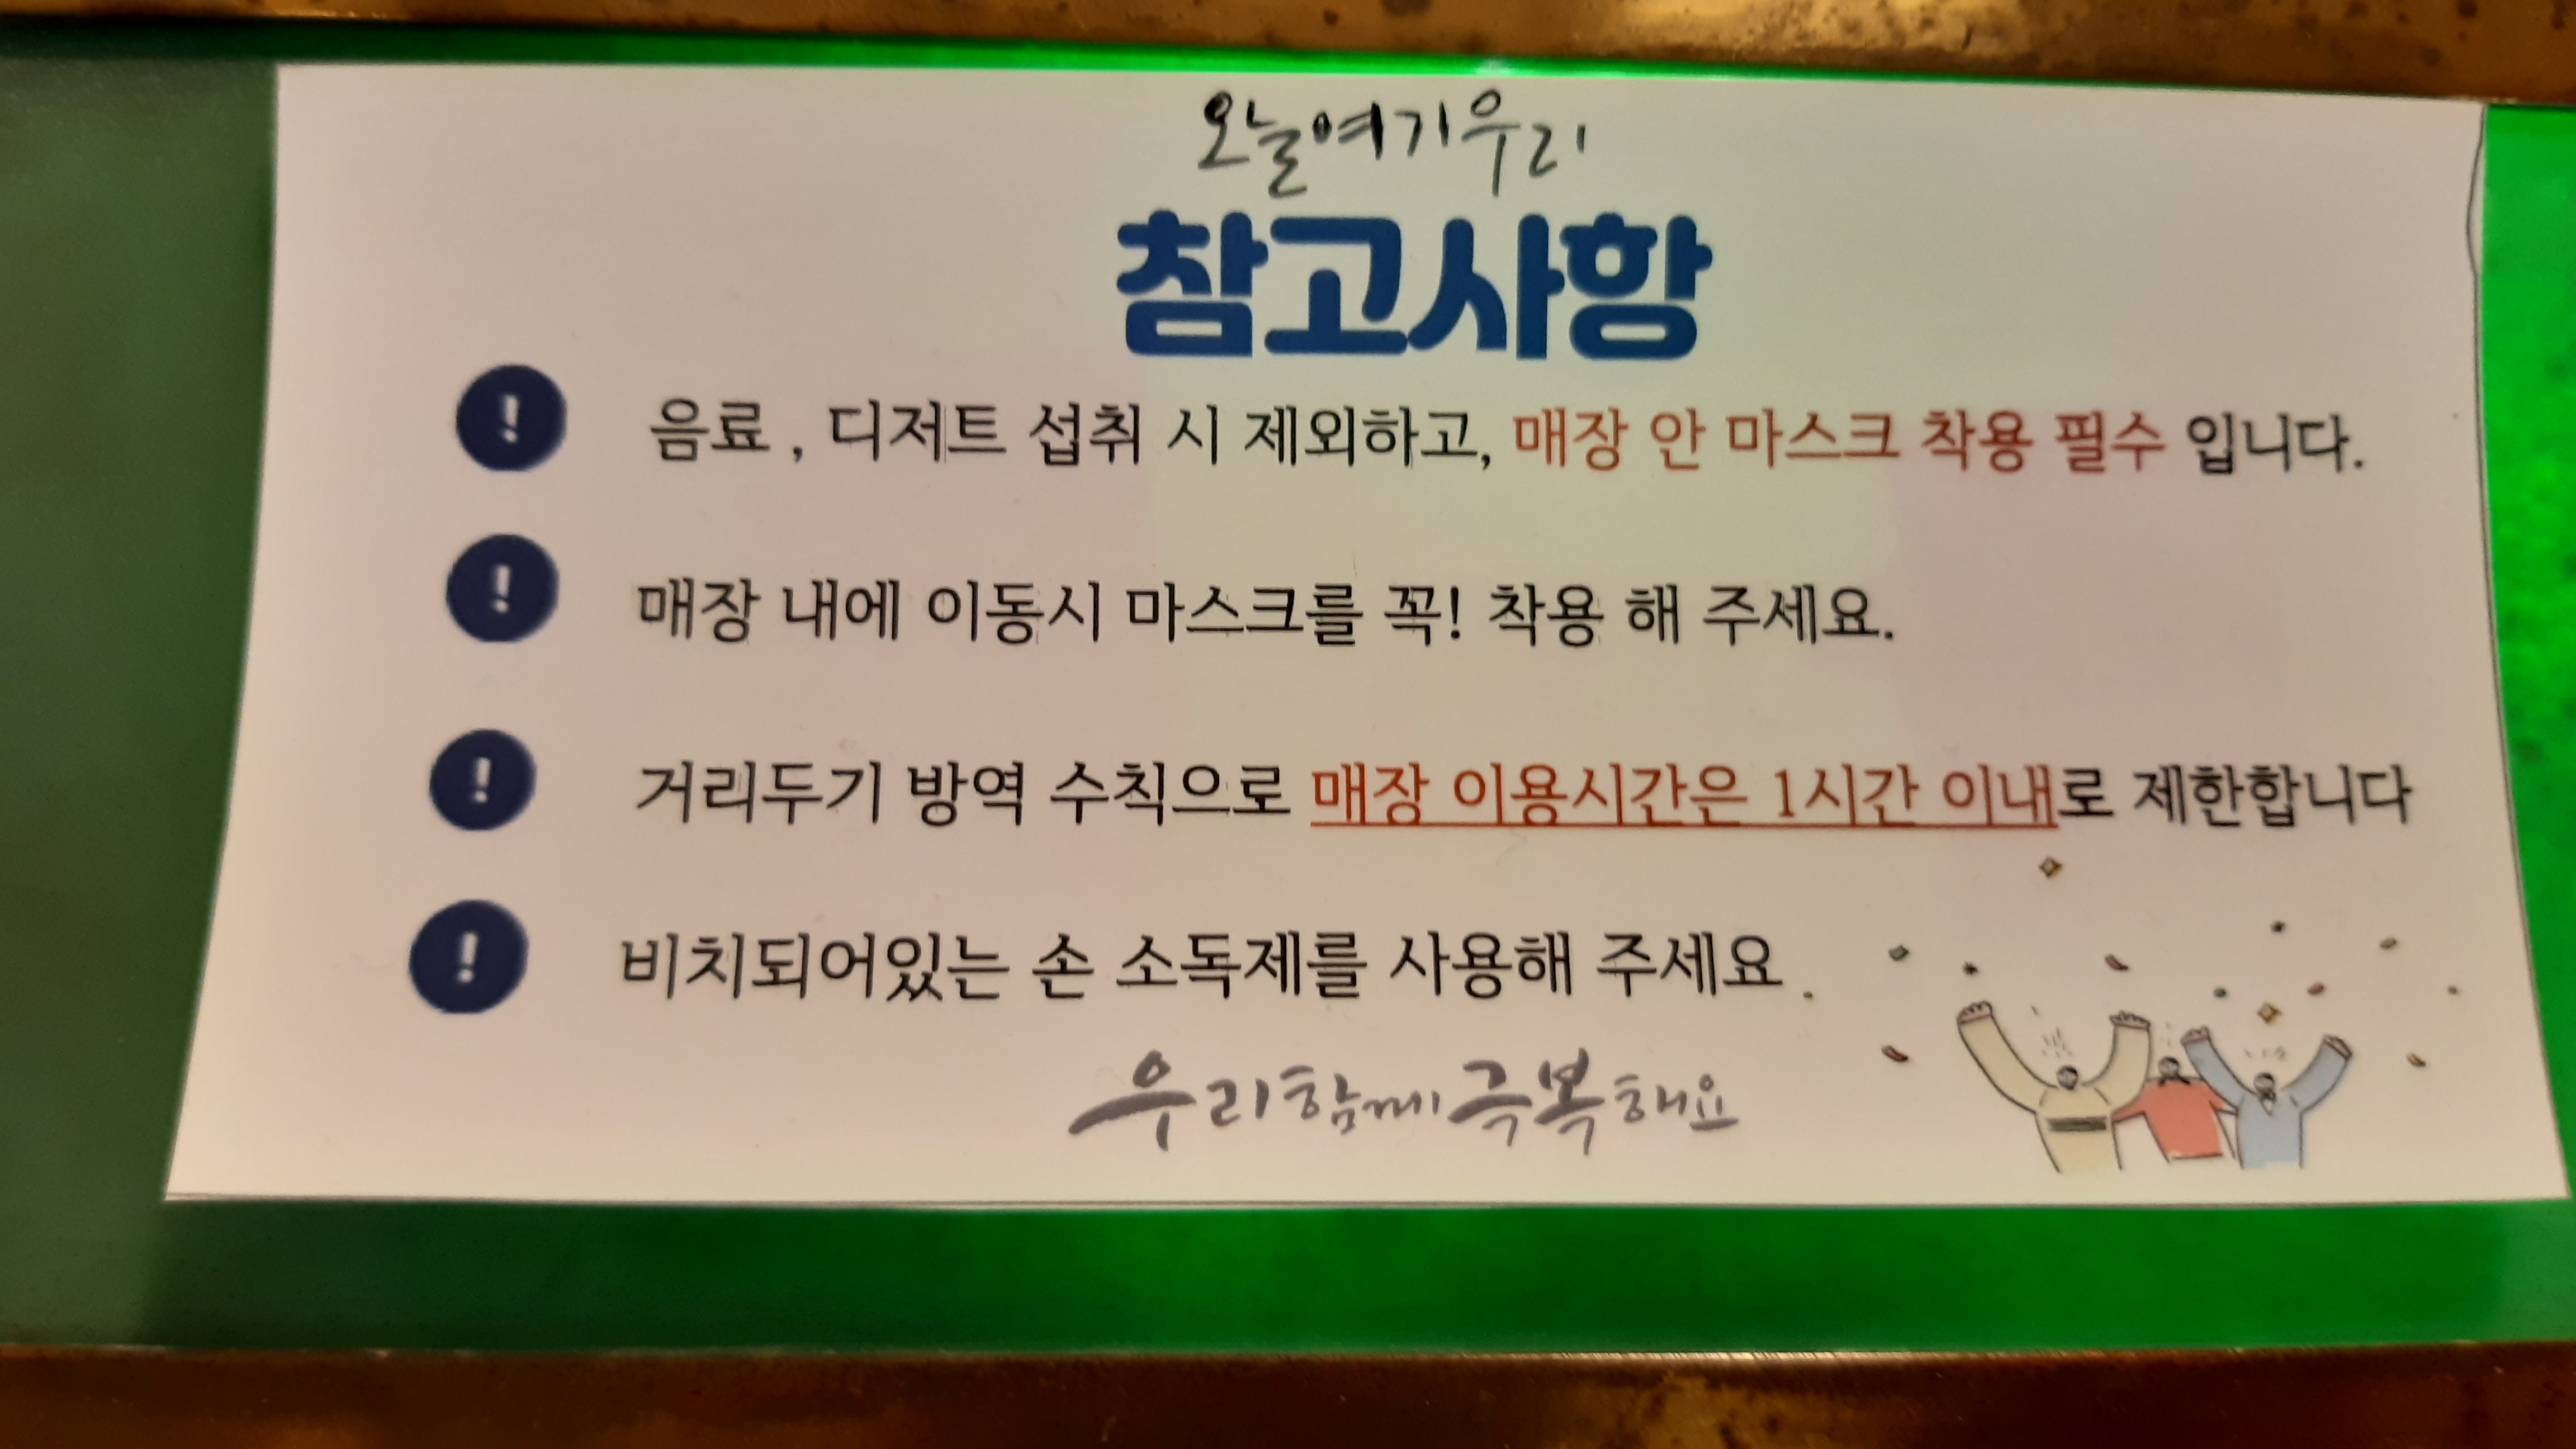 오늘여기우리
참고사항
! 음료 , 디저트 섭취 시 제외하고, 매장 안 마스크 착용 필수 입니다.
! 매장 내에 이동시 마스크를 꼭! 착용 해 주세요.
! 거리두기 방역 수칙으로 매장 이용시간은 1시간 이내로 제한합니다
! 비치되어있는 손 소독제를 사용해 주세요 .
우리함께극복해요